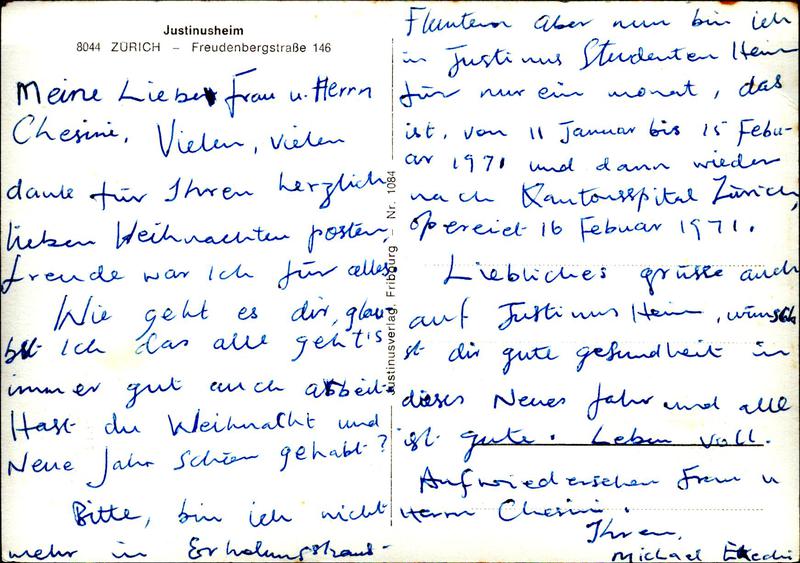 Justinusheim
8044 ZÜRICH – Freudenbergstraße 146
Meine Lieber Frau u. Herrn
Chesini, Vielen, vielen
danke für Ihren herzlich
lieben Weihnachten posten,
freude war Ich für alles.
Wie geht es dir, glau
bst Ich das alle geht's
immer gut auch arbeit.
Hast du Weihnacht und
Neue Jahr schön gehabt?
Bitte, bin ich nicht
mehr in Erholungshaus-
Fluntern aber nun bin ich
in Justinus Studenten Heim
für nur ein monat, das
ist, von 11 Januar bis 15 Febu-
ar 1971 und dann wieder
nach Kantonsspital Zürich,
opereiet 16 Febuar 1971.
Liebliches grüsse auch
auf Justinus Heim, wünsch
st dir gute gesundheit in
dieses Neues Jahr und alle
ist gute. Leben voll.
Aufwiedersehen Frau u
Herrn Chesini.
Ihren,
Michael
Justinusverlag, Fribourg – Nr. 1084